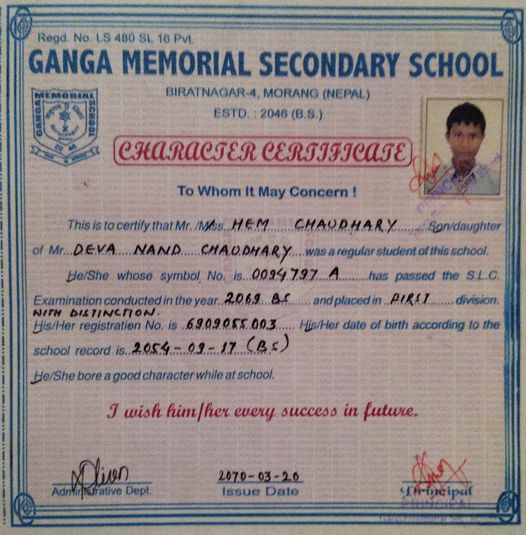 Regd. No. LS 480 SL 16 Pvt.
GANGA MEMORIAL SECONDARY SCHOOL
BIRATNAGAR-4, MORANG (NEPAL)
ESTD. : 2046 (B.S.)
GANGA MEMORIAL SCHOOL
20 46
CHARACTER CERTIFICATE
To Whom It May Concern !
This is to certify that Mr. /Miss HEM CHAUDHARY Son/daughter
of Mr. DEVA NAND CHAUDHARY was a regular student of this school.
He/She whose symbol No. is 0094797 A has passed the S.L.C.
Examination conducted in the year 2069 BS and placed in FIRST division.
WITH DISTINCTION.
His/Her registration No. is 6909055003 His/Her date of birth according to the
school record is 2054-09-17 (BS)
He/She bore a good character while at school.
I wish him/her every success in future.
2070-03-20
Administrative Dept. Issue Date Principal
PRINCIPAL